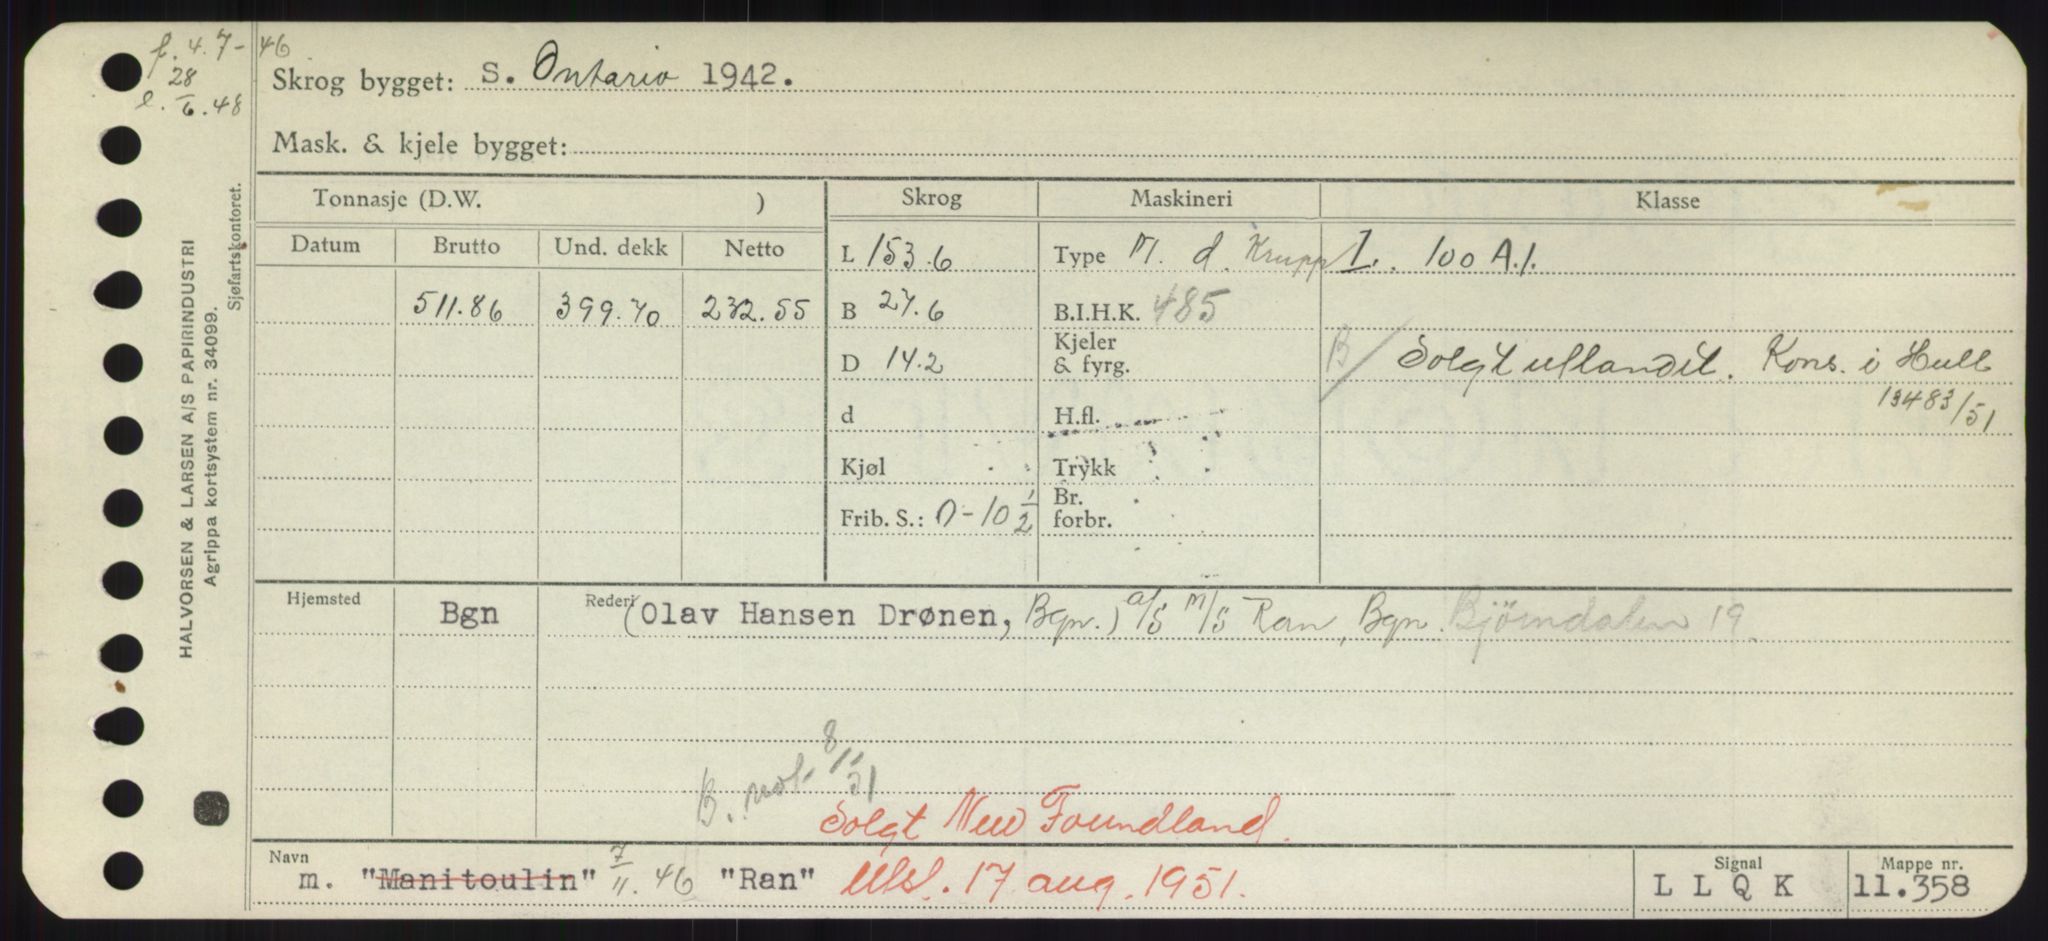 f. 4.7-46
28
l. /6.48
Skrog bygget: S. Ontario 1942.
Mask. & kjele bygget:
HALVORSEN & LARSEN A/S PAPIRINDUSTRI
Agrippa kortsystem nr. 34099.
Sjøfartskontoret.
Tonnasje (D.W. ) Skrog Maskineri Klasse
Datum Brutto Und. dekk Netto
L 153.6 Type M. d. Krupp 1. 100 A.1.
511.86 399.70 232.55 B 27.6 B.I.H.K. 485
D 14.2 Kjeler & fyrg. B/ Solgt utlandet. Kons. i Hull
13483/51
d H.fl.
Kjøl Trykk
Frib. S.: 0-10 1/2 Br. forbr.
Hjemsted Bgn Rederi (Olav Hansen Drønen, Bgn.) a/s M/S Ran, Bgn. Bjørndalen 19.
B. not. 8/11 51
Solgt New Foundland.
Navn m. "Manitoulin" 7/11.46 "Ran" Utsl. 17 aug. 1951. Signal L L Q K Mappe nr. 11.358